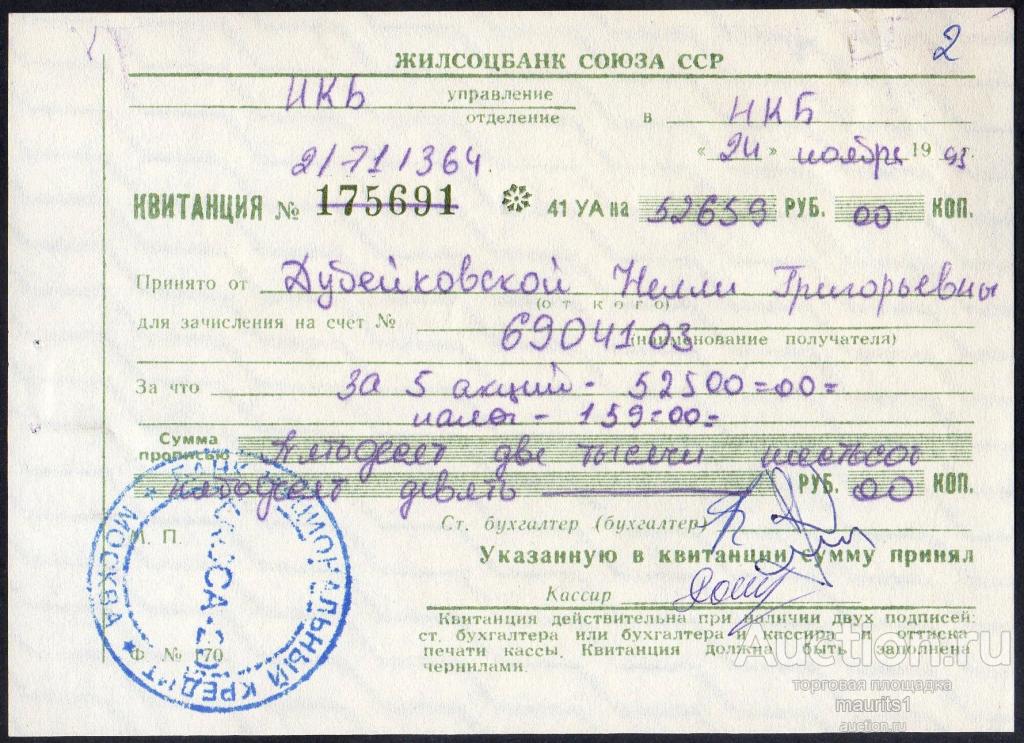 2
ЖИЛСОЦБАНК СОЮЗА ССР
НКБ управление
отделение в НКБ
« 24 » ноября 19 93 г.
21711364
КВИТАНЦИЯ № 175691 41 УА на 52659 РУБ. 00 КОП.
Принято от Дубейковской Нелли Григорьевны
(от кого)
для зачисления на счет № 6904103
(наименование получателя)
За что за 5 акций - 52500=00=
налог - 159=00=
Сумма прописью Пятьдесят две тысячи шестьсот
пятьдесят девять РУБ. 00 КОП.
Ст. бухгалтер (бухгалтер)
М. П.
Указанную в квитанции сумму принял
Кассир
Квитанция действительна при наличии двух подписей:
ст. бухгалтера или бухгалтера и кассира и оттиска
печати кассы. Квитанция должна быть заполнена
чернилами.
Ф. № 170
МОСКВА
КАССА-2
КРЕДИТ
Auction.ru
торговая площадка
maurits1
auction.ru